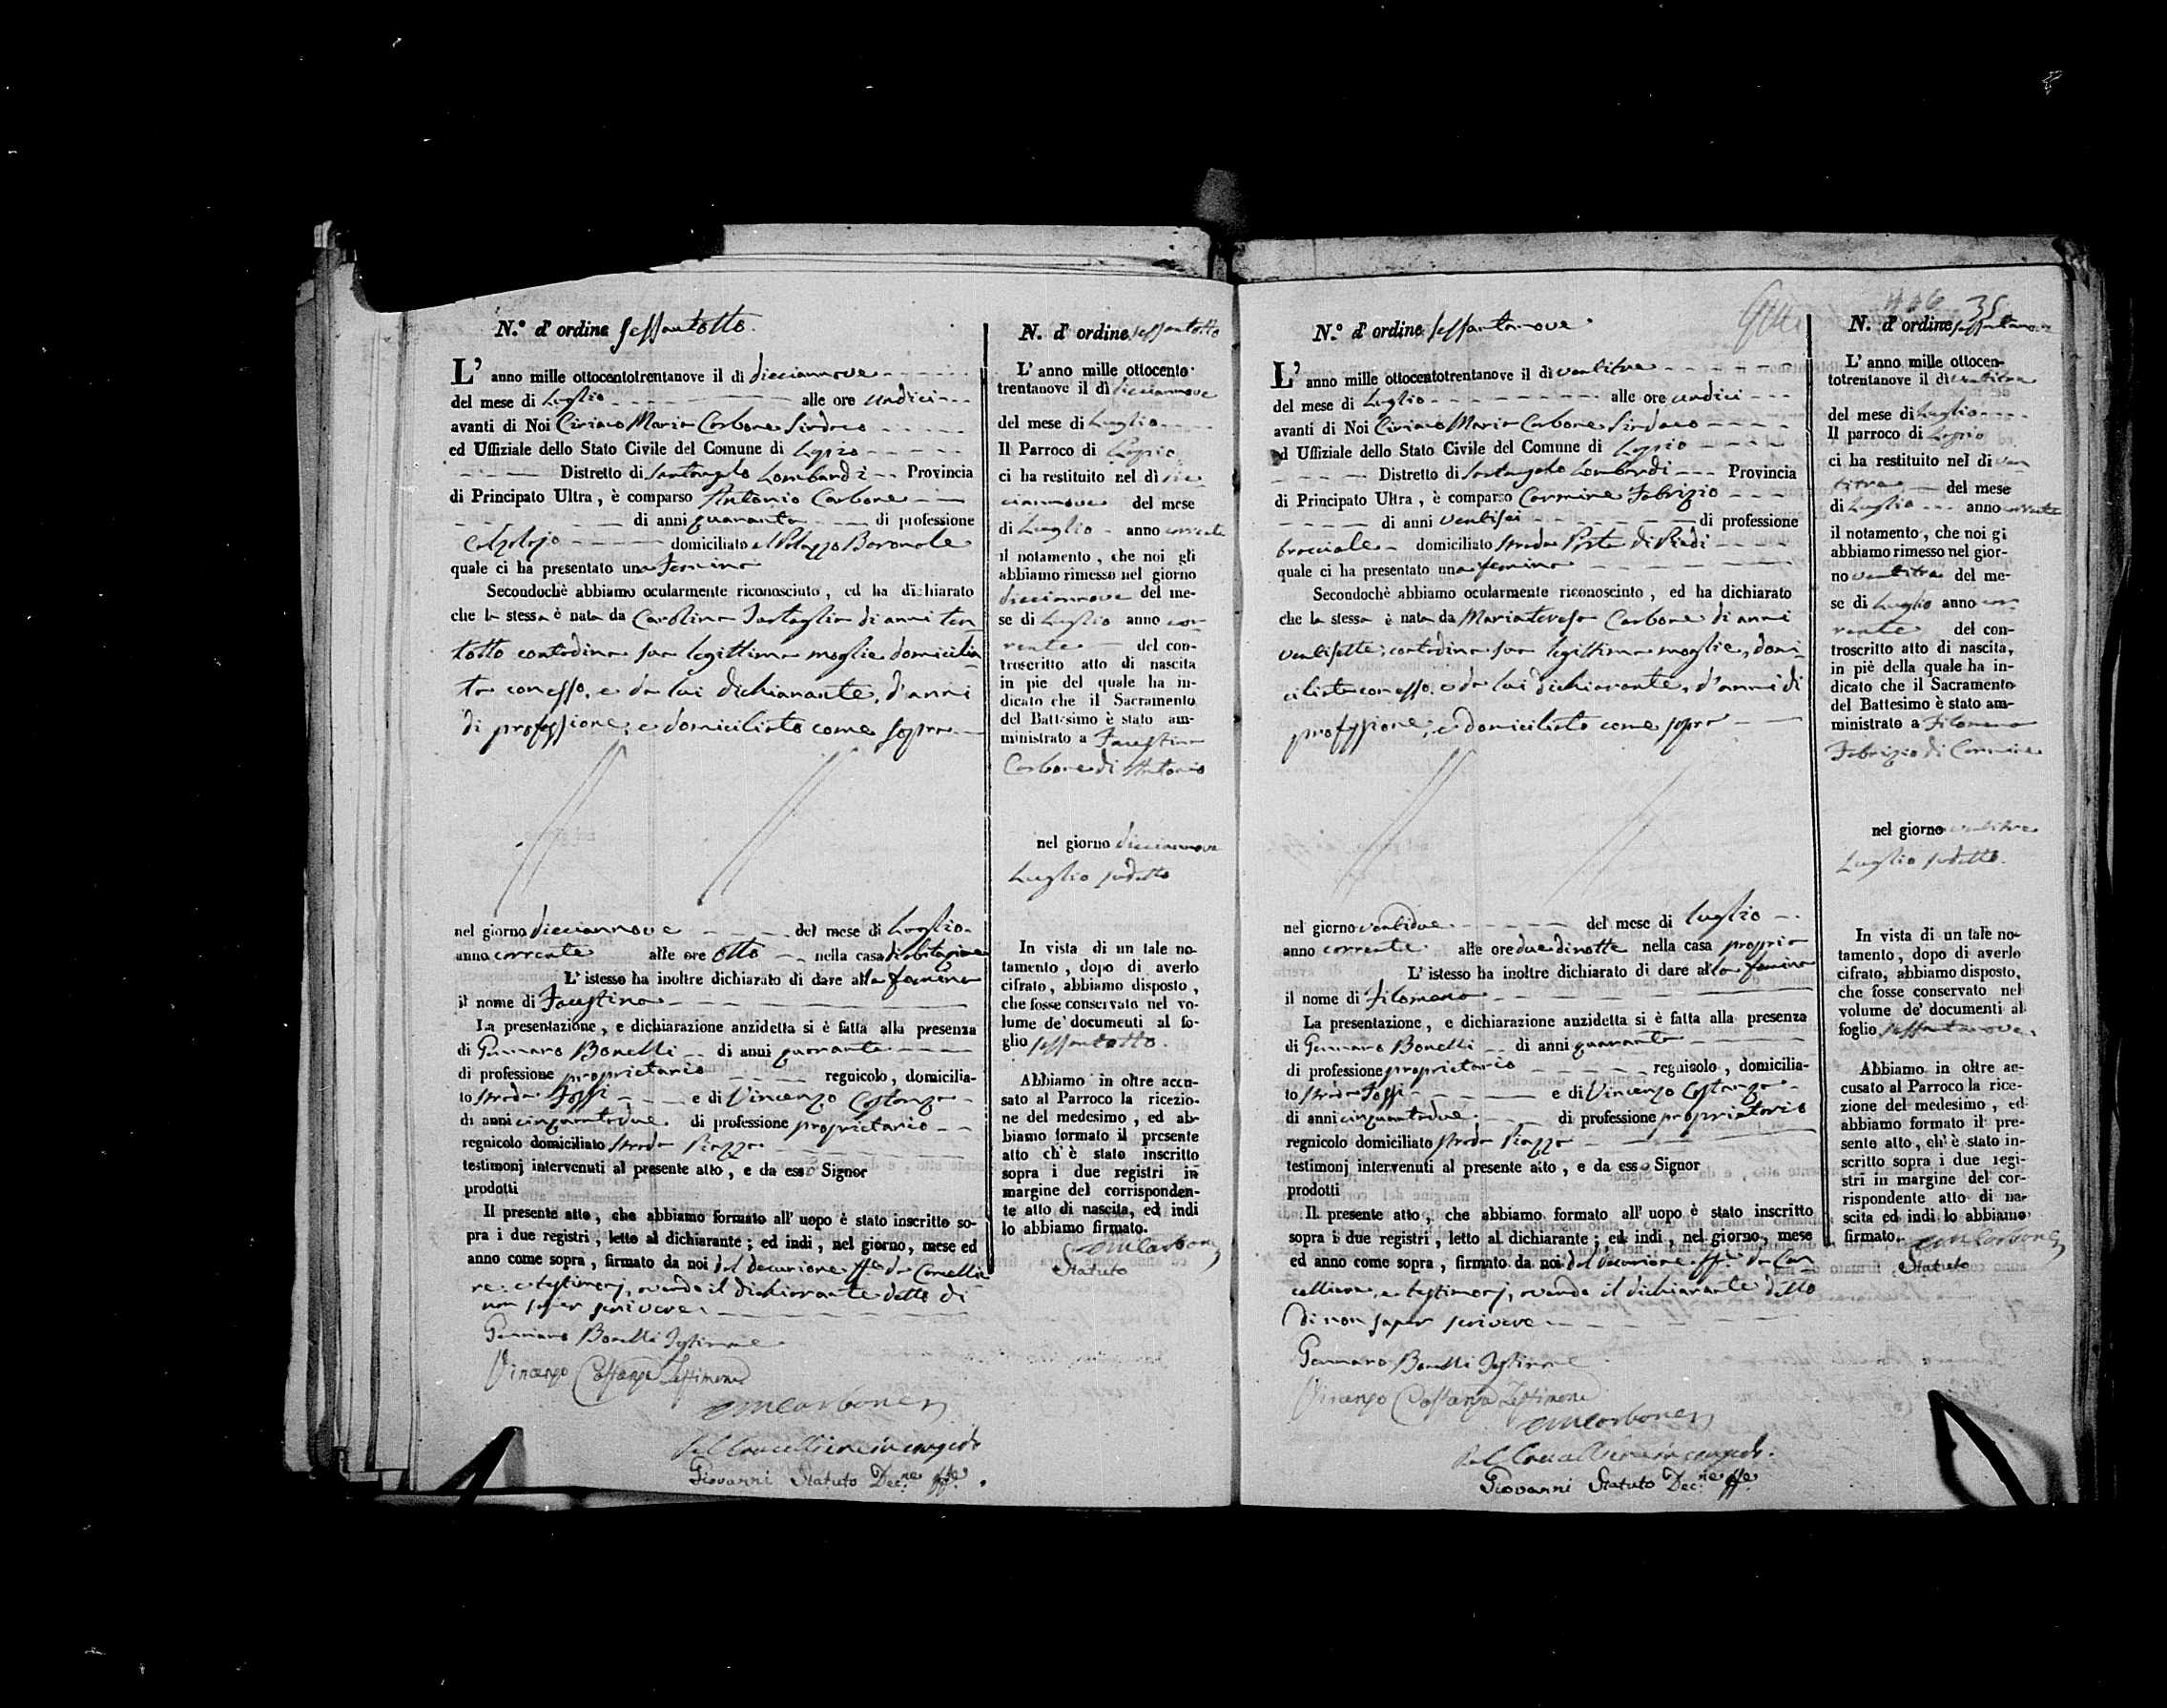 N.º d' ordine sessantotto.
L' anno mille ottocentotrentanove il dì dieciannove
del mese di Luglio alle ore undici
avanti di Noi Ciriaco Maria Carbone Sindaco
ed Uffiziale dello Stato Civile del Comune di
Distretto di Santangelo Lombardi Provincia
di Principato Ultra, è comparso Antonio Carbone
di anni quaranta di professione
Calzolajo domiciliato al Palazzo Baronale
quale ci ha presentato una Femina
Secondochè abbiamo ocularmente riconosciuto, ed ha dichiarato
che la stessa è nata da Carolina Tartaglia di anni tren
totto contadina sua legittima moglie domicilia
ta con esso, e da lui dichiarante, d'anni
di professione, e domiciliato come sopra
nel giorno dieciannove del mese di Luglio
anno corrente alle ore otto nella casa di abitazione
L' istesso ha inoltre dichiarato di dare alla femina
il nome di Faustina
La presentazione, e dichiarazione anzidetta si è fatta alla presenza
di Gennaro Bonelli di anni quaranta
di professione proprietario regnicolo, domicilia-
to strada Fossi e di Vincenzo Costanza
di anni cinquantadue di professione proprietario
regnicolo domiciliato strada Piazza
testimonj intervenuti al presente atto, e da esso Signor
prodotti
Il presente atto, che abbiamo formato all' uopo è stato inscritto so-
pra i due registri, letto al dichiarante; ed indi, nel giorno, mese ed
anno come sopra, firmato da noi dal decurione ff.e da Cancellie
re: e testimonj, avendo il dichiarante detto di
non saper scrivere.
Gennaro Bonelli Testimone
Vincenzo Costanza Testimone
CMCarbone
Pel Cancelliere in congedo
Giovanni Statuto Dec.ne ff.e
N. d' ordine sessantotto
L' anno mille ottocento-
trentanove il dì dieciannove
del mese di Luglio
Il Parroco di
ci ha restituito nel dì die
ciannove del mese
di Luglio anno corrente
il notamento, che noi gli
abbiamo rimesso nel giorno
dieciannove del me-
se di Luglio anno cor-
rente del con-
troscritto atto di nascita
in pie del quale ha in-
dicato che il Sacramento
del Battesimo è stato am-
ministrato a Faustina
Carbone di Antonio
nel giorno dieciannove
Luglio sudetto
In vista di un tale no-
tamento, dopo di averlo
cifrato, abbiamo disposto,
che fosse conservato nel vo-
lume de' documenti al fo-
glio sessantotto.
Abbiamo in oltre accu-
sato al Parroco la ricezio-
ne del medesimo, ed ab-
biamo formato il presente
atto ch' è stato inscritto
sopra i due registri in
margine del corrisponden-
te atto di nascita, ed indi
lo abbiamo firmato.
CMCarbone
Statuto
35
N.º d' ordine sessantanove
L' anno mille ottocentotrentanove il dì ventitre
del mese di Luglio alle ore undici
avanti di Noi Ciriaco Maria Carbone Sindaco
ed Uffiziale dello Stato Civile del Comune di
Distretto di Santangelo Lombardi Provincia
di Principato Ultra, è comparso Carmine Fabrizio
di anni ventisei di professione
bracciale domiciliato strada Porta di Piedi
quale ci ha presentato una femina
Secondochè abbiamo ocularmente riconosciuto, ed ha dichiarato
che la stessa è nata da Mariateresa Carbone di anni
ventisette, contadina sua legittima moglie, domi
ciliata con esso, e da lui dichiarante, d'anni di
professione, e domiciliato come sopra
nel giorno ventidue del mese di luglio
anno corrente alle ore due di notte nella casa propria
L' istesso ha inoltre dichiarato di dare alla femina
il nome di Filomena
La presentazione, e dichiarazione anzidetta si è fatta alla presenza
di Gennaro Bonelli di anni quaranta
di professione proprietario regnicolo, domicilia-
to strada Fossi e di Vincenzo Costanza
di anni cinquantadue di professione proprietario
regnicolo domiciliato strada Piazza
testimonj intervenuti al presente atto, e da esso Signor
prodotti
Il presente atto, che abbiamo formato all' uopo è stato inscritto
sopra i due registri, letto al dichiarante; ed indi, nel giorno, mese
ed anno come sopra, firmato da noi dal decurione ff.e da Can
celliere, e testimonj, avendo il dichiarante detto
di non saper scrivere
Gennaro Bonelli Testimone
Vincenzo Costanza Testimone
CMCarbone
Pel Cancelliere in congedo.
Giovanni Statuto Dec.ne ff.e
N. d' ordine sessantanove
L' anno mille ottocen-
totrentanove il dì ventitre
del mese di Luglio
Il parroco di
ci ha restituito nel dì ven
titre del mese
di Luglio anno corrente
il notamento, che noi gi
abbiamo rimesso nel gior-
no ventitre del me-
se di Luglio anno cor-
rente del con-
troscritto atto di nascita,
in piè della quale ha in-
dicato che il Sacramento
del Battesimo è stato am-
ministrato a Filomena
Fabrizio di Carmine
nel giorno ventitre
Luglio sudetto.
In vista di un tale no-
tamento, dopo di averlo
cifrato, abbiamo disposto,
che fosse conservato nel
volume de' documenti al
foglio sessantanove.
Abbiamo in oltre ac-
cusato al Parroco la rice-
zione del medesimo, ed
abbiamo formato il pre-
sente atto, ch' è stato in-
scritto sopra i due regi-
stri in margine del cor-
rispondente atto di na-
scita ed indi lo abbiamo
firmato.
CMCarbone
Statuto